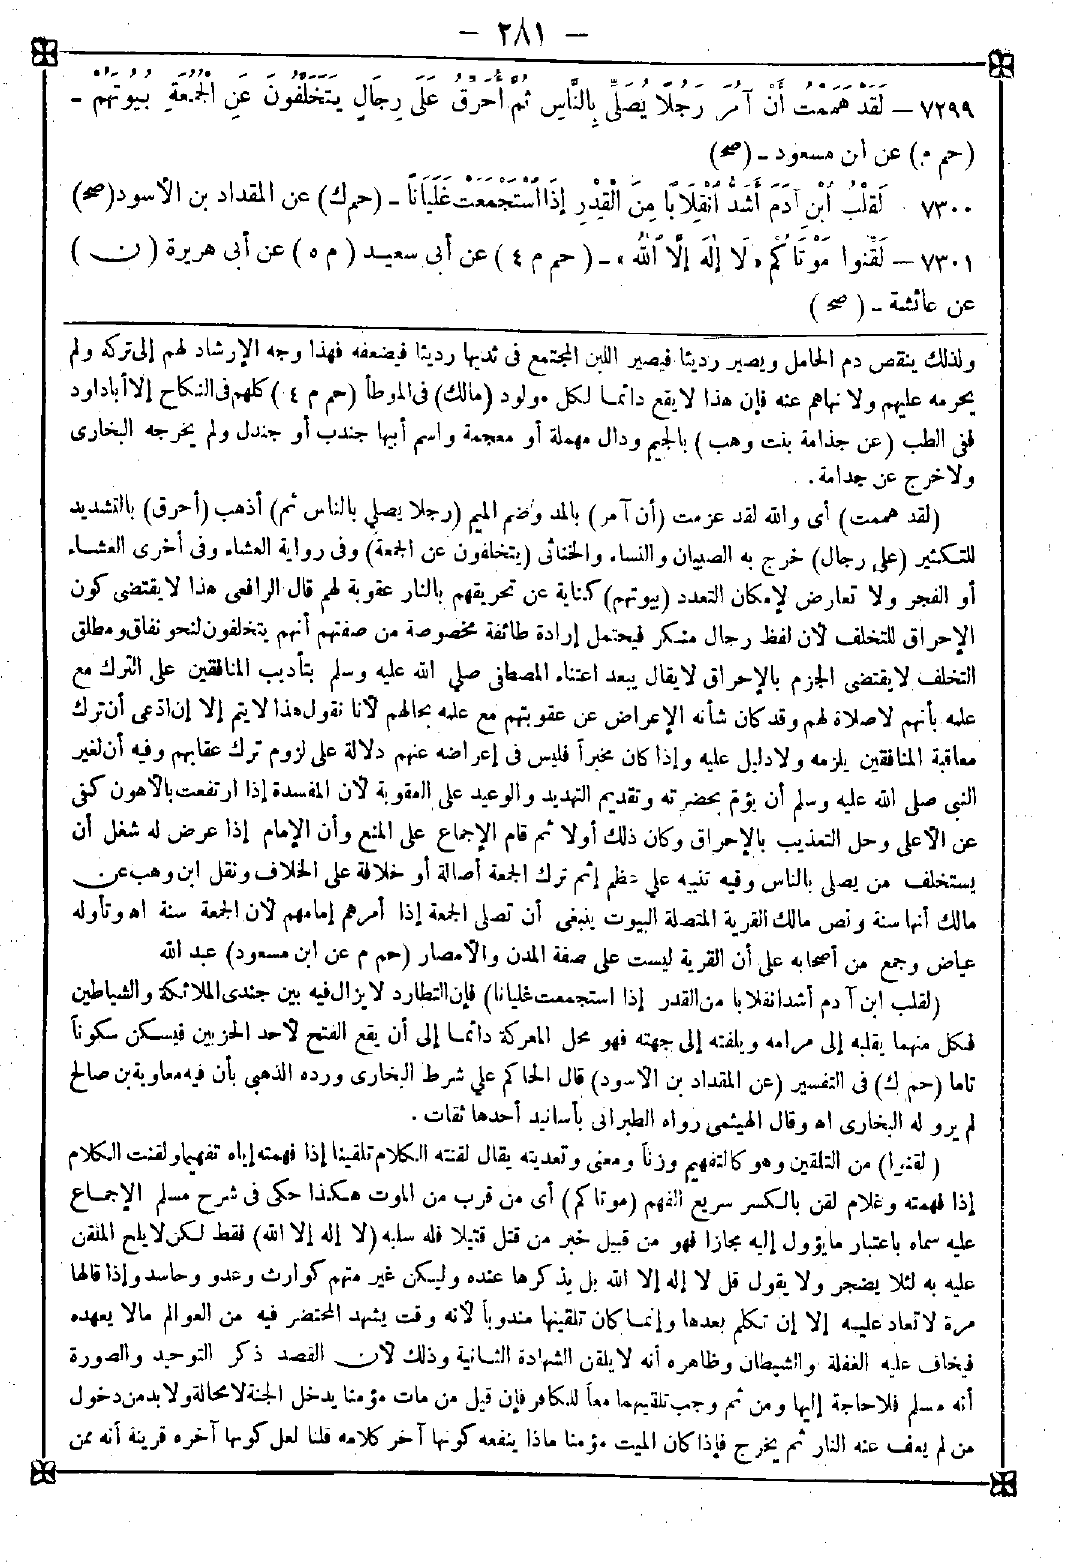 - ٢٨١ -
٧٢٩٩ — لَقَدْ هَمَمْتُ أَنْ آمُرَ رَجُلًا يُصَلِّي بِالنَّاسِ ثُمَّ أُحَرِّقَ عَلَى رِجَالٍ يَتَخَلَّفُونَ عَنِ الْجُمُعَةِ بُيُوتَهُمْ -
(حم م) عن ابن مسعود - (صح)
٧٣٠٠ - لَقَلْبُ ابْنِ آدَمَ أَشَدُّ انْقِلَابًا مِنَ الْقِدْرِ إِذَا اسْتَجْمَعَتْ غَلَيَانًا - (حم ك) عن المقداد بن الأسود (صح)
٧٣٠١ — لَقِّنُوا مَوْتَاكُمْ «لَا إِلَهَ إِلَّا اللهُ» - (حم م ٤) عن أبى سعيد (م ه) عن أبى هريرة (ن)
عن عائشة - (صح)
ولذلك ينقص دم الحامل ويصير رديئا فيصير اللبن المجتمع فى ثديها رديئا فيضعفه فهذا وجه الإرشاد لهم إلى تركه ولم
يحرمه عليهم ولا نهاهم عنه فإن هذا لا يقع دائما لكل مولود (مالك) فى الموطأ (حم م ٤) كلهم فى النكاح إلا أبا داود
ففى الطب (عن جذامة بنت وهب) بالجيم ودال مهملة أو معجمة واسم أبيها جندب أو جندل ولم يخرجه البخارى
ولا خرج عن جدامة.
(لقد هممت) أى والله لقد عزمت (أن آمر) بالمد وضم الميم (رجلا يصلي بالناس ثم) أذهب (أحرق) بالتشديد
للتكثير (على رجال) خرج به الصبيان والنساء والخناثى (يتخلفون عن الجمعة) وفى رواية العشاء وفى أخرى العشاء
أو الفجر ولا تعارض لإمكان التعدد (بيوتهم) كناية عن تحريقهم بالنار عقوبة لهم قال الرافعى هذا لا يقتضى كون
الإحراق للتخلف لأن لفظ رجال منكر فيحتمل إرادة طائفة مخصوصة من صفتهم أنهم يتخلفون لنحو نفاق ومطلق
التخلف لا يقتضى الجزم بالإحراق لا يقال يبعد اعتناء المصطفى صلي الله عليه وسلم بتأديب المنافقين على الترك مع
علمه بأنهم لا صلاة لهم وقد كان شأنه الإعراض عن عقوبتهم مع علمه بحالهم لأنا نقول هذا لا يتم إلا إن ادعى أن ترك
معاقبة المنافقين يلزمه ولا دليل عليه وإذا كان مخيراً فليس فى إعراضه عنهم دلالة على لزوم ترك عقابهم وفيه أن لغير
النبى صلى الله عليه وسلم أن يؤم بحضرته وتقديم التهديد والوعيد على العقوبة لأن المفسدة إذا ارتفعت بالأهون كفى
عن الأعلى وحل التعذيب بالإحراق وكان ذلك أولا ثم قام الإجماع على المنع وأن الإمام إذا عرض له شغل أن
يستخلف من يصلى بالناس وفيه تنبيه علي عظم إثم ترك الجمعة أصالة أو خلافة على الخلاف ونقل ابن وهب عن
مالك أنها سنة ونص مالك القرية المتصلة البيوت ينبغى أن تصلى الجمعة إذا أمرهم إمامهم لأن الجمعة سنة اه وتأوله
عياض وجمع من أصحابه على أن القرية ليست على صفة المدن والأمصار (حم م عن ابن مسعود) عبد الله
(لقلب ابن آدم أشد انقلابا من القدر إذا استجمعت غليانا) فإن التطارد لا يزال فيه بين جندى الملائكة والشياطين
فكل منهما يقلبه إلى مرامه ويلفته إلى جهته فهو محل المعركة دائما إلى أن يقع الفتح لأحد الحزبين فيسكن سكوناً
تاما (حم ك) فى التفسير (عن المقداد بن الأسود) قال الحاكم علي شرط البخارى ورده الذهبي بأن فيه معاوية بن صالح
لم يرو له البخارى اه وقال الهيثمى رواه الطبرانى بأسانيد أحدها ثقات.
(لقنوا) من التلقين وهو كالتفهيم وزناً ومعنى وتعديته يقال لقنته الكلام تلقينا إذا فهمته إياه تفهيما ولقنت الكلام
إذا فهمته وغلام لقن بالكسر سريع الفهم (موتاكم) أى من قرب من الموت هكذا حكى فى شرح مسلم الإجماع
عليه سماه باعتبار ما يؤول إليه مجازا فهو من قبيل خبر من قتل قتيلا فله سلبه (لا إله إلا الله) فقط لكن لا يلح الملقن
عليه به لئلا يضجر ولا يقول قل لا إله إلا الله بل يذكرها عنده وليكن غير متهم كوارث وعدو وحاسد وإذا قالها
مرة لا تعاد عليه إلا إن تكلم بعدها وإنما كان تلقينها مندوباً لأنه وقت يشهد المحتضر فيه من العوالم مالا يعهده
فيخاف عليه الغفلة والشيطان وظاهره أنه لا يلقن الشهادة الثانية وذلك لأن القصد ذكر التوحيد والصورة
أنه مسلم فلا حاجة إليها ومن ثم وجب تلقينهما معاً للكافر فإن قيل من مات مؤمنا يدخل الجنة لا محالة ولا بد من دخول
من لم يعف عنه النار ثم يخرج فإذا كان الميت مؤمنا ماذا ينفعه كونها آخر كلامه قلنا لعل كونها آخره قرينة أنه ممن